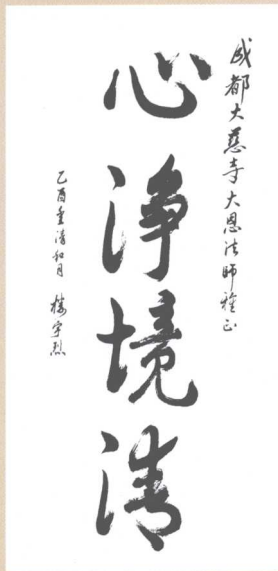 成都大慈寺大恩法师雅正
心净境清
乙酉年清和月 楼宇烈